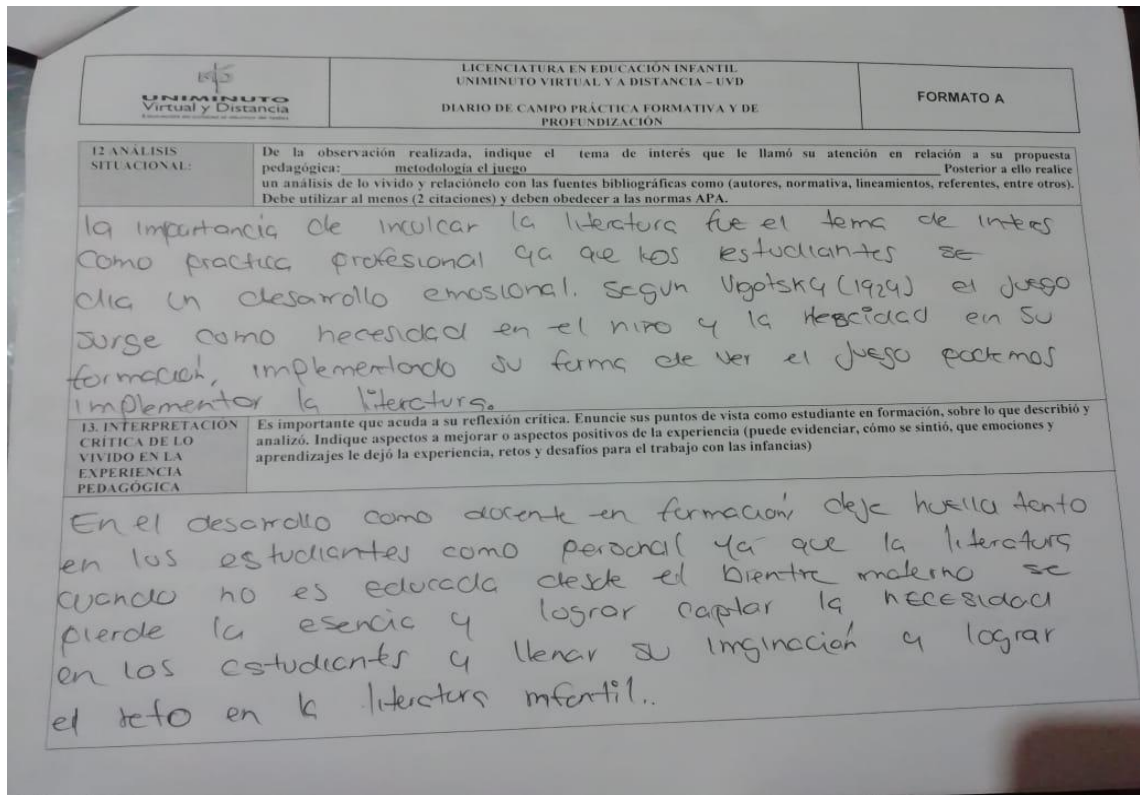 UNIMINUTO
Virtual y Distancia
LICENCIATURA EN EDUCACIÓN INFANTIL
UNIMINUTO VIRTUAL Y A DISTANCIA – UVD
DIARIO DE CAMPO PRÁCTICA FORMATIVA Y DE
PROFUNDIZACIÓN
FORMATO A
12 ANÁLISIS
SITUACIONAL:
De la observación realizada, indique el tema de interés que le llamó su atención en relación a su propuesta
pedagógica: metodología el juego Posterior a ello realice
un análisis de lo vivido y relaciónelo con las fuentes bibliográficas como (autores, normativa, lineamientos, referentes, entre otros).
Debe utilizar al menos (2 citaciones) y deben obedecer a las normas APA.
la importancia de inculcar la literatura fue el tema de interes
como practica profesional ya que los estudiantes se
dia un desarrollo emosional. Segun Vgotsky (1924) el juego
surge como necesidad en el niño y la en su
formación, implementando su forma de ver el juego podemos
implementar la literatura.
13. INTERPRETACIÓN
CRÍTICA DE LO
VIVIDO EN LA
EXPERIENCIA
PEDAGÓGICA
Es importante que acuda a su reflexión crítica. Enuncie sus puntos de vista como estudiante en formación, sobre lo que describió y
analizó. Indique aspectos a mejorar o aspectos positivos de la experiencia (puede evidenciar, cómo se sintió, que emociones y
aprendizajes le dejó la experiencia, retos y desafíos para el trabajo con las infancias)
En el desarrollo como docente en formación deje huella tanto
en los estudiantes como peronal ya que la literatura
cuando no es educada desde el bientre materno se
pierde la esencia y lograr captar la necesidad
en los estudiantes y llenar su imginación y lograr
el reto en la literatura infantil..